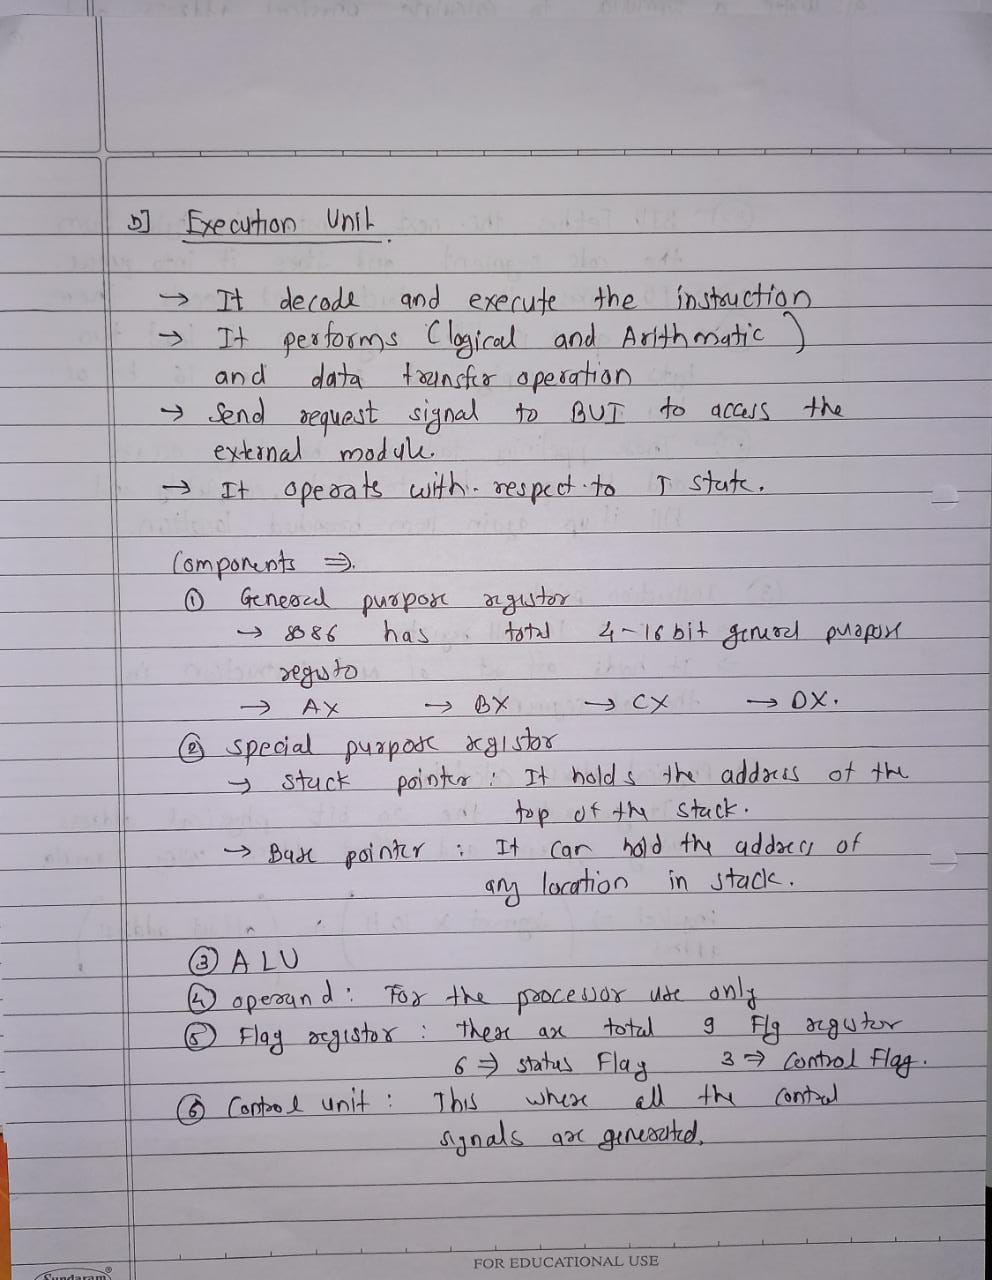 b] Execution Unit.
→ It decode and execute the instruction
→ It performs (logical and Arithmatic)
and data transfer operation
→ Send request signal to BUI to access the
external module.
→ It operats with. respect. to T state.
Components ⇒.
① General purpose registor
→ 8086 has total 4-16 bit general purpose
registo
→ AX → BX → CX → DX.
② special purpose registor
→ stack pointer : It holds the address of the
top of the stack.
→ Base pointer : It can hold the address of
any location in stack.
③ ALU
④ operand : For the processor use only
⑤ Flag registor : there are total 9 Flg registor
6 ⇒ status Flag 3 ⇒ Control Flag.
⑥ Control unit : This where all the control
signals are generated.
FOR EDUCATIONAL USE
Sundaram